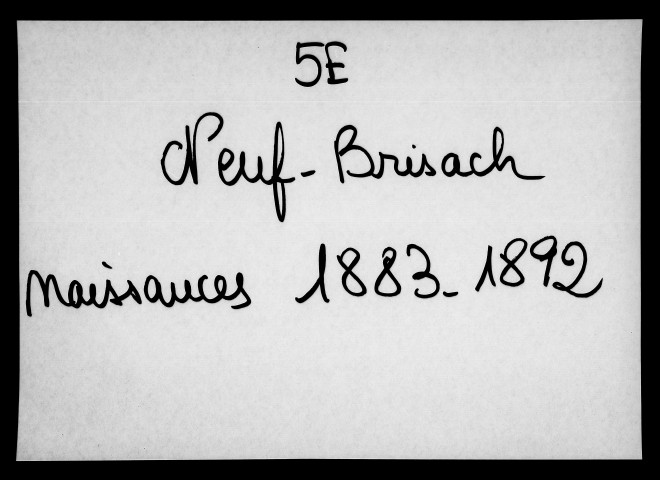 5E
Neuf-Brisach
naissances 1883-1892